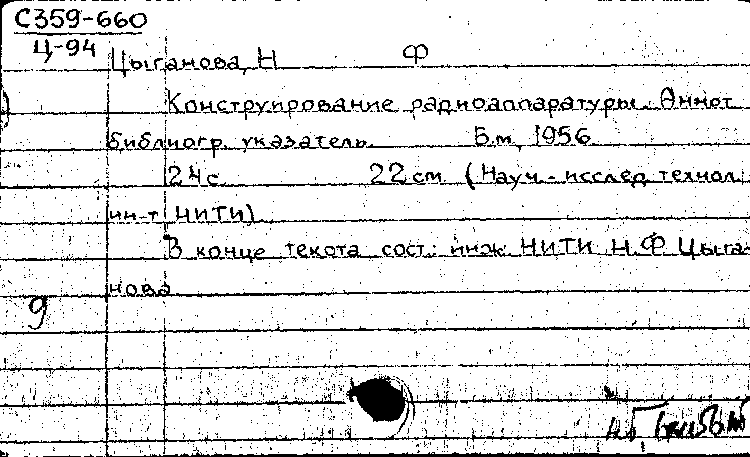 С359-660
Ц-94
Цыганова, Н Ф
Конструирование радиоаппаратуры. Аннот
библиогр. указатель. Б.м, 1956
24с 22 см (Науч.-исслед. технол.
ин-т НИТИ)
В конце текста сост.: инж НИТИ Н.Ф Цыга-
нова
9